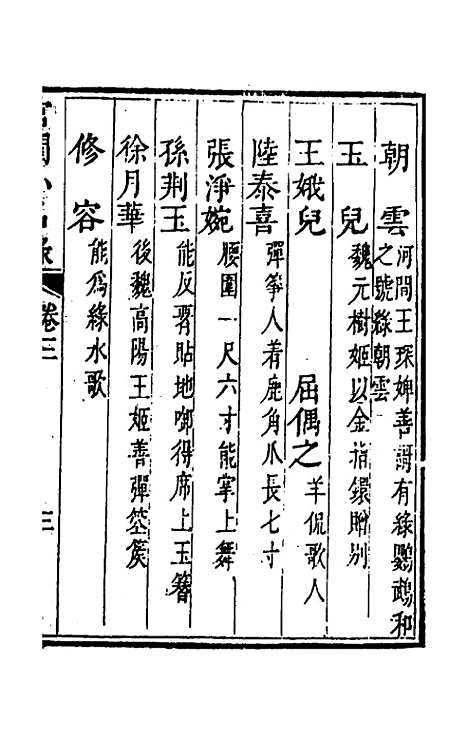 朝雲河間王琛婢善謌有綠鸚鵡和
之號綠朝雲
玉兒魏元樹姬以金指鐶贈别
王娥兒 屈偶之羊侃歌人
陸泰喜彈箏人着鹿角爪長七寸
張淨婉腰圍一尺六寸能掌上舞
孫荆玉能反㝯貼地啣得席上玉簪
徐月華後魏高陽王姬善彈箜篌
修容能爲綠水歌
宮閨小名錄 卷三 三